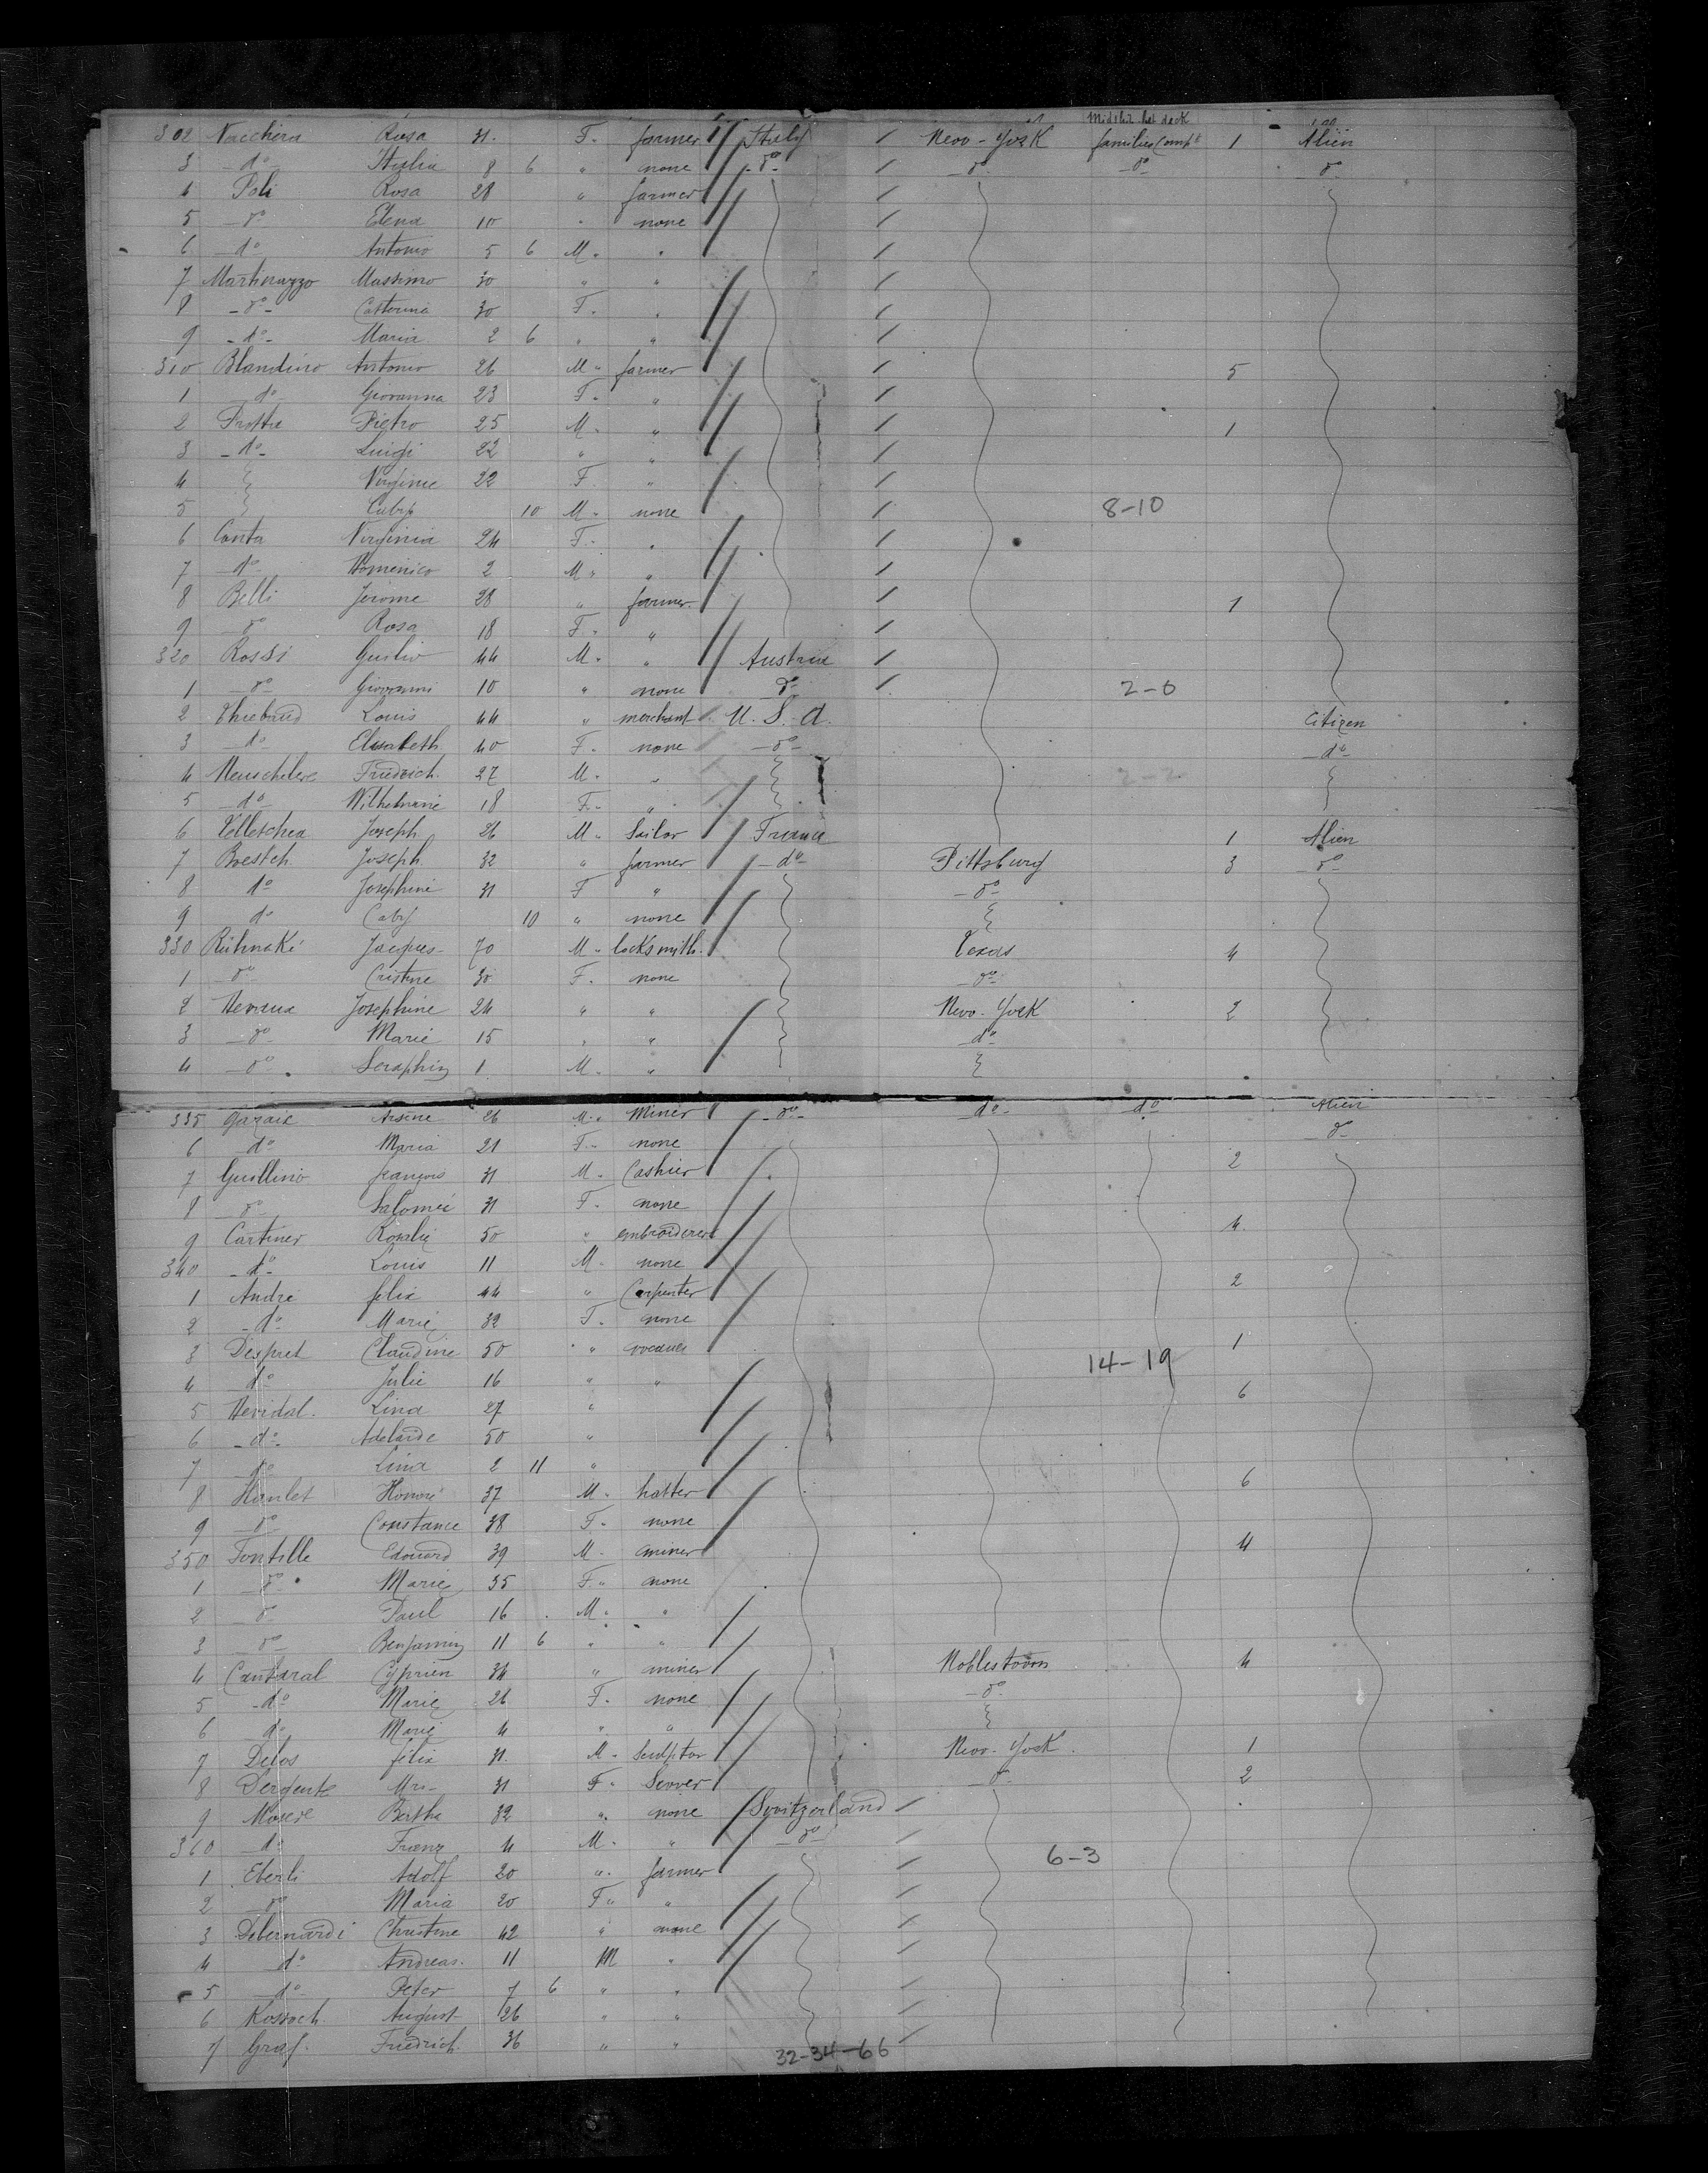 Midship bet deck
302 Rosa 31. F. farmer Italy New-York families Compt 1 Alien
3 -do- Italia 8 6 " none -do- -do- -do- -do-
4 Poli Rosa 28 " farmer
5 -do- Elena 10 " none
6 -do- Antonio 5 6 M. "
7 Martinazzo Massimo 30 " "
8 -do- Catterina 30 F. "
9 -do- Maria 2 6 " "
310 Blandino Antonio 26 M " farmer 5
1 do Giovanna 23 F. "
2 Frotta Pietro 25 M. " 1
3 -do- Luigi 22 " "
4 Virginie 22 F. "
5 10 M. none 8-10
6 Conta Virginia 24 F. "
7 -do- Domenico 2 M " "
8 Belli Jerome 28 " farmer 1
9 -do- Rosa 18 F. "
320 Rossi Guilio 44 M. " Austria
1 -do- Giovanni 10 " none do 2-0
2 Thiebaud Louis 44 " merchant U. S. A. Citizen
3 -do- Elisabeth 40 F. none -do- -do-
4 Friedrich 27 M. " 2-2
5 -do- Wilhelmine 18 F. "
6 Joseph 26 M. Sailor France 1 Alien
7 Bresteh Joseph 32 " farmer -do- Pittsburg 3 -do-
8 do Josephine 31 F " -do-
9 do 10 " none
330 Jacques 70 M. locksmith. Texas 4
1 do Cristine 30 F. none -do-
2 Josephine 24 " " New-York 2
3 -do- Marie 15 " " do
4 -do- Seraphin 1 M. "
335 Garaix Arsene 26 M. " Miner -do- do- do Alien
6 do Maria 21 F. none do
7 Guillino françois 31 M. Cashier 2
8 do Salomée 31 F. none
9 Cartiner Rosalie 50 " embroiderer 4
340 -do- Louis 11 M. none
1 André félix 44 " Carpenter 2
2 -do- Marie 32 F. none
3 Despret Claudine 50 " 14-19 1
4 -do- Julie 16 " "
5 Lina 27 " 6
6 -do- Adelaide 50 "
7 do Lina 2 11 "
8 Hanlet Honoré 37 M. hatter 6
9 do Constance 38 F. none
350 Fontille Edouard 39 M. miner 4
1 -do- Marie 35 F. none
2 -do- Paul 16 M. "
3 -do- Benjamin 11 6 " "
4 Cantaral Cyprien 34 " miner Noblestown 4
5 -do- Marie 26 F. none -do-
6 do Marie 4 " "
7 Delos félix 31. M. Sculptor New-York. 1
8 Mrs- 31 F. Sewer do 2
9 Bertha 32 " none Switzerland
360 do Franz 4 M. " -do-
1 Eberli Adolf 20 " farmer 6-3
2 -do- Maria 20 F. "
3 Debernardi Christine 42 " none
4 -do- Andreas. 11 M "
5 -do- Peter 7 6 " "
6 August 26 " "
7 Graf. Friedrich 36 " "
32-34-66